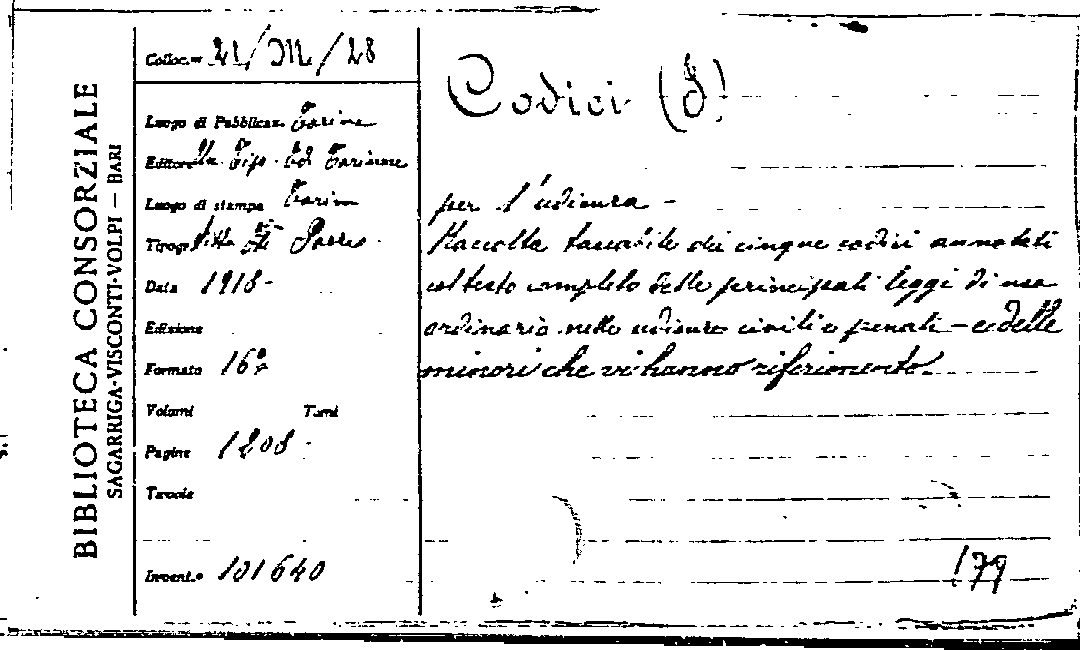 BIBLIOTECA CONSORZIALE
SAGARRIGA-VISCONTI-VOLPI — BARI
Colloc.ne 21/M/28
Luogo di Pubblicaz. Torino
Editore Un. Tip. Ed Torinese
Luogo di stampa Torino
Tipogr.
Data 1918-
Edizione
Formato 16°
Volumi Tomi
Pagine 1208
Tavole
Invent.° 101640
Codici (I)
per l'udienza -
Raccolta tascabile dei cinque codici annotati
col testo completo delle principali leggi di uso
ordinario nelle udienze civili e penali - e delle
minori che vi hanno riferimento.
179